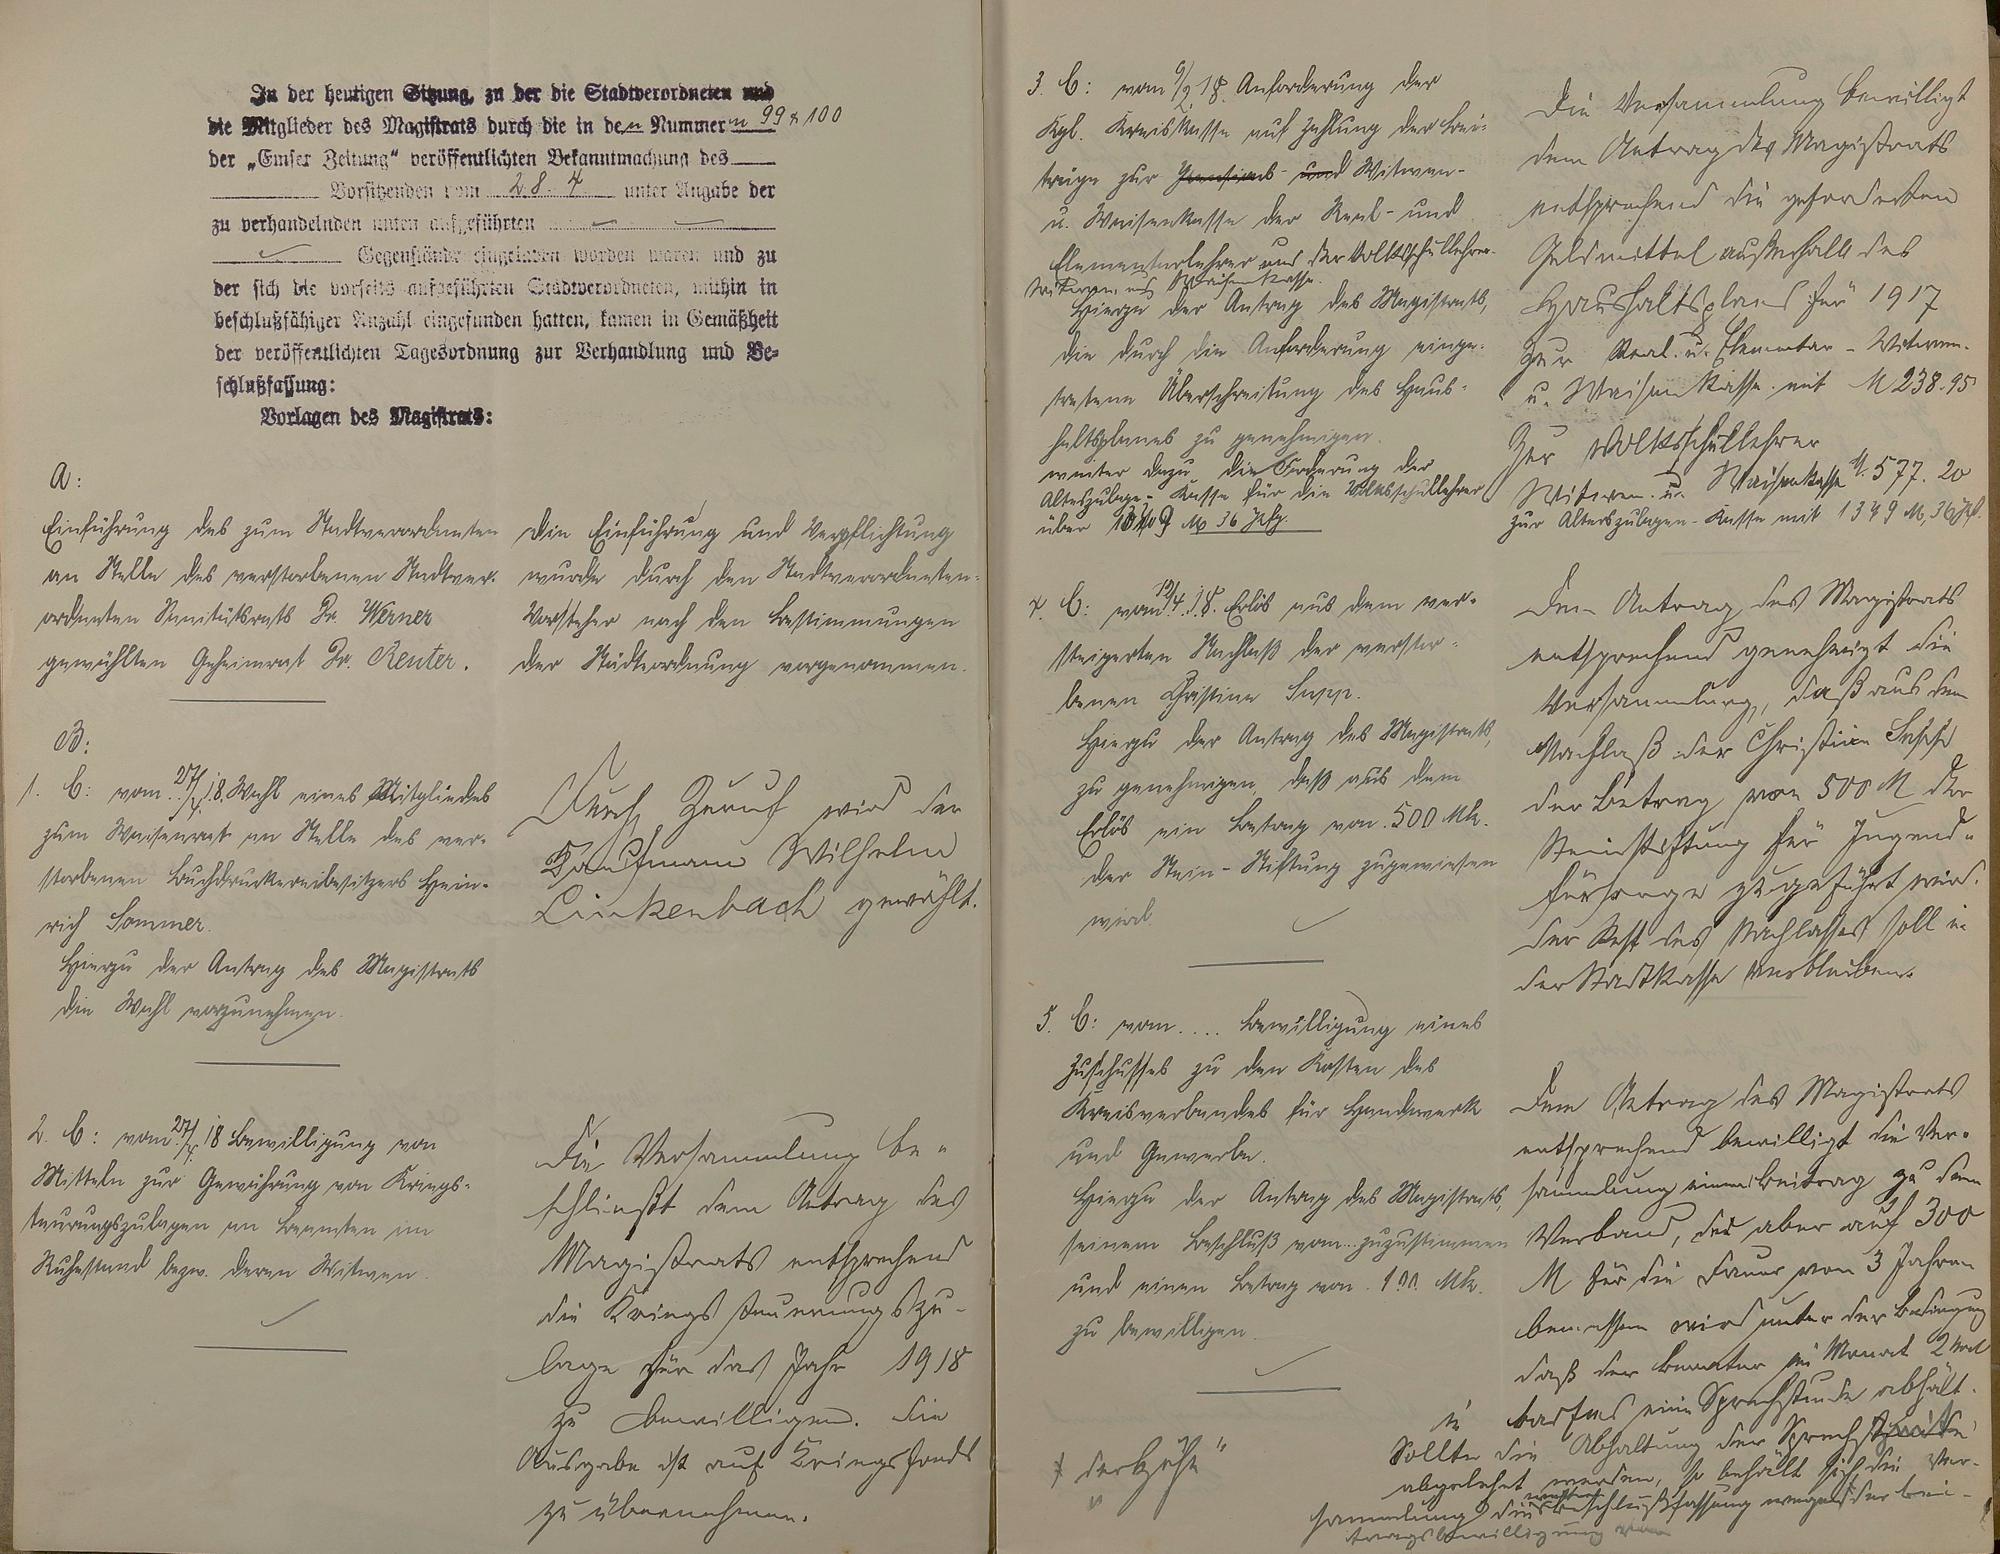 In der heutigen Sitzung, zu der die Stadtverordneten und
die Mitglieder des Magistrats durch die in den Nummern 99 & 100
der „Emser Zeitung“ veröffentlichten Bekanntmachung des
Vorsitzenden vom 28. 4 unter Angabe der
zu verhandelnden unten aufgeführten
Gegenstände eingeladen worden waren und zu
der sich die vorseits aufgeführten Stadtverordneten, mithin in
beschlußfähiger Anzahl eingefunden hatten, kamen in Gemäßheit
der veröffentlichten Tagesordnung zur Verhandlung und Be-
schlußfassung:
Vorlagen des Magistrats:
A:
Einführung des zum Stadtverordneten
an Stelle des verstorbenen Stadtver-
ordneten Sanitätsrats Dr. Werner
gewählten Geheimrat Dr. Reuter.
Die Einführung und Verpflichtung
wurde durch den Stadtverordneten-
Vorsteher nach den Bestimmungen
der Städteordnung vorgenommen.
B:
1. B: vom 27/4. 18. Wahl eines Mitgliedes
zum Waisenrat an Stelle des ver-
storbenen Buchdruckereibesitzers Hein-
rich Sommer.
Hierzu der Antrag des Magistrats
die Wahl vorzunehmen.
Durch Zuruf wird der
Kaufmann Wilhelm
Linkenbach gewählt.
2. B: vom 27/4. 18 Bewilligung von
Mitteln zur Gewährung von Kriegs-
teurungszulagen an Beamten im
Ruhestand bezw. deren Witwen.
Die Versammlung be-
schließt dem Antrag des
Magistrats entsprechend
die Kriegsteuerungszu-
lage für das Jahr 1918
zu bewilligen. Die
Ausgabe ist auf Kriegsfonds
zu übernehmen.
3. B: vom 9/2. 18. Anforderung der
Kgl. Kreiskasse auf Zahlung der Bei-
träge zur Pensions- und Witwen-
u. Waisenkasse der Real- und
Elementarlehrer und der Volksschullehrer-
Witwen und Waisenkasse.
Hierzu der Antrag des Magistrats,
die durch die Anforderung einge-
tretene Überschreitung des Haus-
haltsplanes zu genehmigen.
weiter dazu die Forderung der
Alterszulage-Kasse für die Volksschullehrer
über 1349 M 36 Pfg.
Die Versammlung bewilligt
dem Antrag des Magistrats
entsprechend die geforderten
Geldmittel außerhalb des
Haushaltsplans für 1917
Zur Real- u. Elementar-Witwen-
u. Waisenkasse mit M 238.95
Zur Volksschullehrer
Witwen- u. Waisenkasse M. 577.20
zur Alterszulagen-Kasse mit 1349 M, 36 Pf.
4. B: vom 12/4. 18. Erlös aus dem ver-
steigerten Nachlaß der verstor-
benen Christine Supp.
Hierzu der Antrag des Magistrats,
zu genehmigen, daß aus dem
Erlös ein Betrag von 500 Mk.
der Stein-Stiftung zugewiesen
wird.
Dem Antrag des Magistrats
entsprechend genehmigt die
Versammlung, daß aus dem
Nachlaß der Christine Supp
der Betrag von 500 M der
Steinstiftung für Jugend-
fürsorge zugeführt wird.
Der Rest des Nachlasses soll in
der Stadtkasse verbleiben.
5. B: vom .... Bewilligung eines
Zuschusses zu den Kosten des
Kreisverbandes für Handwerk
und Gewerbe.
Hierzu der Antrag des Magistrats,
seinem Beschluß vom .. zuzustimmen
und einen Betrag von 100 Mk.
zu bewilligen.
Dem Antrag des Magistrats
entsprechend bewilligt die Ver-
sammlung einen Beitrag zu dem
Verband, der aber auf 300
M für die Dauer von 3 Jahren
bemessen wird unter der Bedingung
daß der Berater im Monat 2 mal
eine Sprechstunde abhält.
Sollte die Abhaltung der Sprechstunde
abgelehnt werden, so behält sich die Ver-
sammlung die Beschlußfassung wegen der Bei-
tragsbewilligung vor